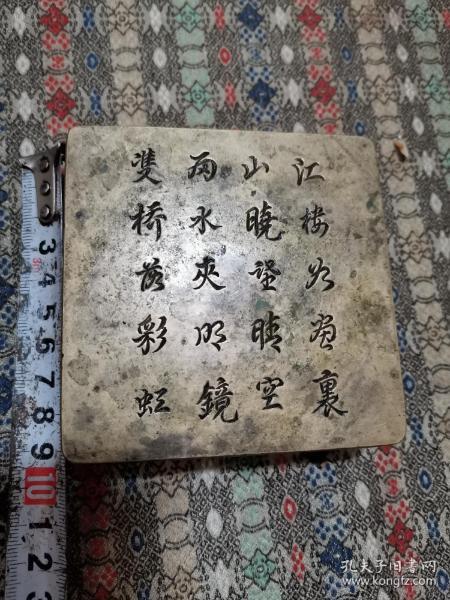 江楼如畫裏
山曉望晴空
兩水夾明鏡
雙橋落彩虹
3 4 5 6 7 8 9 10 1 2 3
孔夫子旧书网
www.kongfz.com